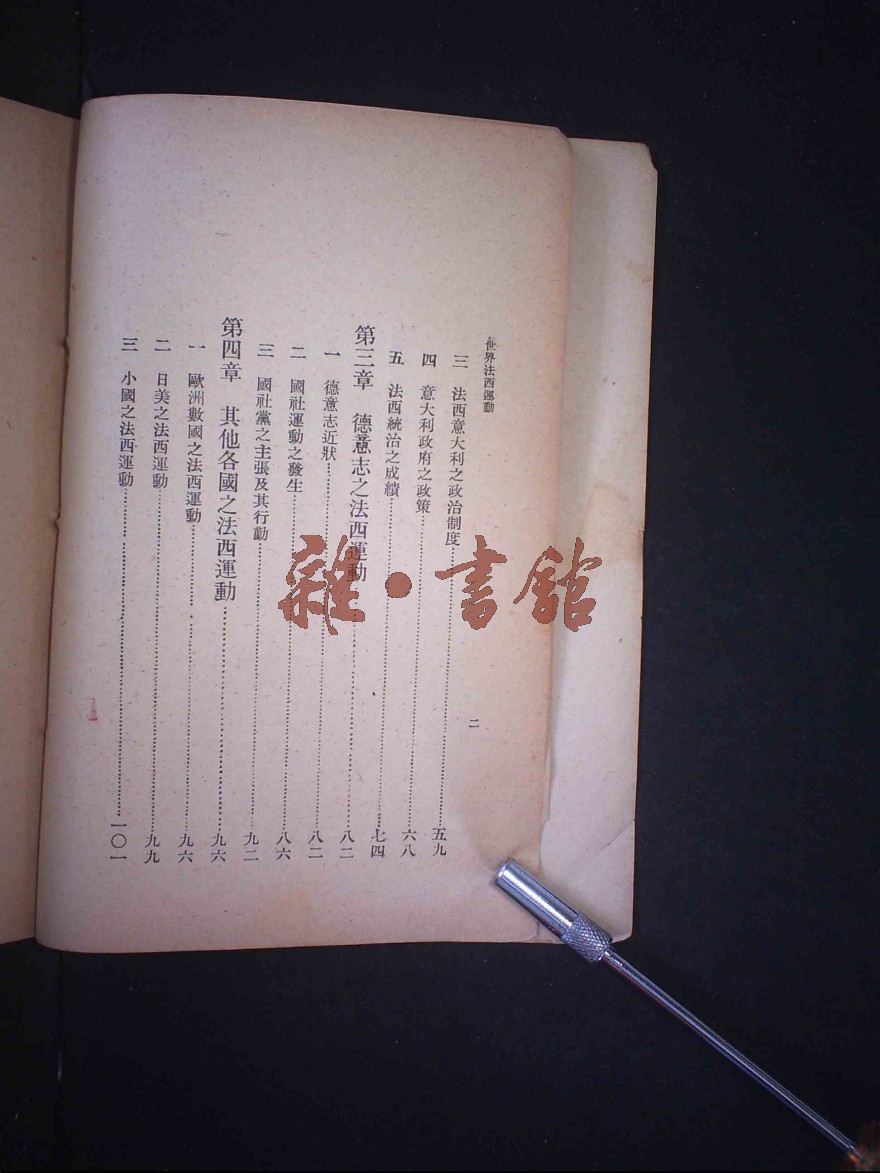 世界法西運動
二
三 法西意大利之政治制度……五九
四 意大利政府之政策……六八
五 法西統治之成績……七四
第三章 德意志之法西運動……八二
一 德意志近狀……八二
二 國社運動之發生……八六
三 國社黨之主張及其行動……九二
第四章 其他各國之法西運動……九六
一 歐洲數國之法西運動……九六
二 日美之法西運動……九九
三 小國之法西運動……一〇一
雜·書館